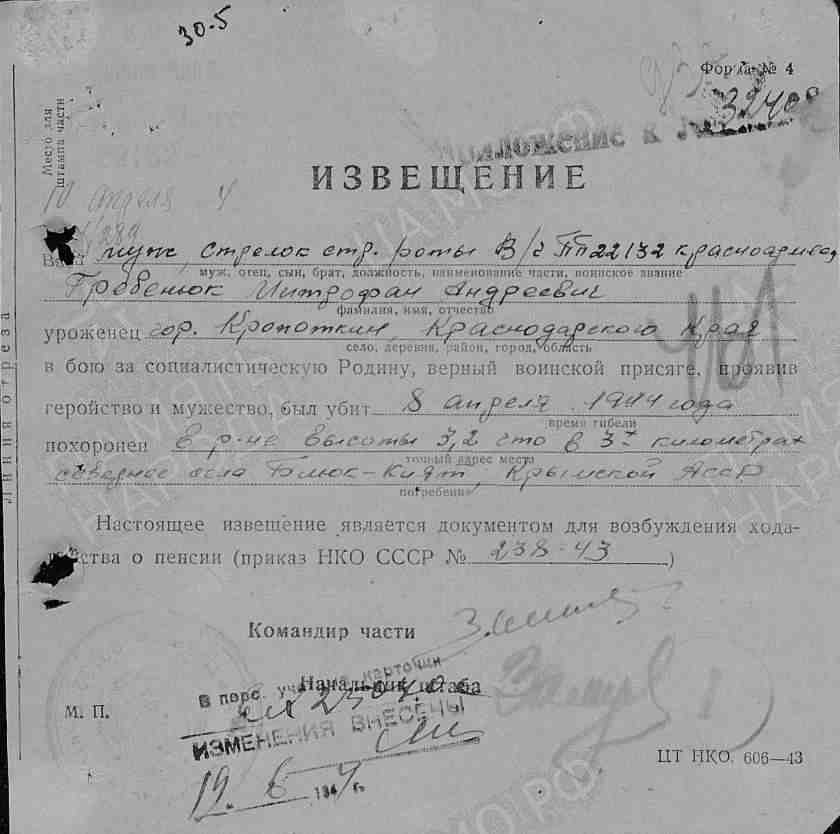 30-5
Форма № 4
32408
Приложение к
Место для
штампа части
ИЗВЕЩЕНИЕ
10 апреля 4
муж, стрелок стр. роты В/ч ПП 22132 красноармеец
муж, отец, сын, брат, должность, наименование части, воинское звание
Гребенюк Митрофан Андреевич
фамилия, имя, отчество
уроженец гор. Кропоткин, Краснодарского Края
село, деревня, район, город, область
в бою за социалистическую Родину, верный воинской присяге, проявив
геройство и мужество, был убит 8 апреля 1944 года
время гибели
похоронен в р-не высоты 3,2 что в 3х километрах
точный адрес места
севернее села Биюк-Кият, Крымской АССР
погребения
Настоящее извещение является документом для возбуждения хода-
тайства о пенсии (приказ НКО СССР № 238-43)
Командир части
В перс. карточки
Начальник штаба
М. П.
ИЗМЕНЕНИЯ ВНЕСЕНЫ
19. 6 1944 г.
ЦТ НКО. 606—43
Линия отреза